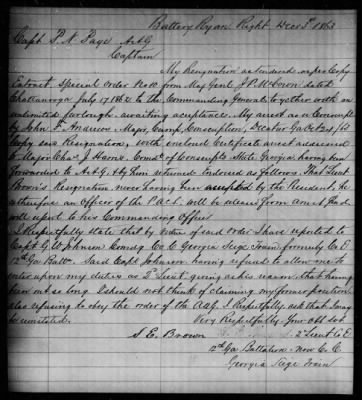 Battery Ryan Right Decr 3d 1863
Capt P. N. Page A.A.G
Captain
My Resignation as tendered as per Copy
Extract, Special Order No from Maj Genl J P McCown dated
Chattanooga July 17 1862 to the Commanding General together with an
unlimited furlough awaiting acceptance. My arrest as a Conscript
by John F. Andrews, Major, Comdg Conscription, Decatur Ga Oct
Copy and Resignation, with enclosed Certificate arrest addressed
to Major Chas J Harris Comdt of Conscripts State Georgia having been
forwarded to A.A.G. & by him returned endorsed as follows. That Lieut
Brown's Resignation never having been accepted by the President, he
is therefore an Officer of the P.A.C.S. will be released from arrest and
will report to his Commanding Officer
I Respectfully state that by virtue of said order I have reported to
Capt G W Johnson Comdg Co C Georgia Seige Train formerly Co E
12th Ga Batt. Said Capt Johnson having refused to allow me to
enter upon my duties as 2d Lieut. giving as his reason that having
been out so long I should not think of claiming my former position
also refusing to obey the order of the AAG. I Respectfully ask that I may
be reinstated.
Very Respectfully Your Obt Svt
S. E. Brown
2d Lieut Co E
12th Ga Battalion now Co C
Georgia Siege Train